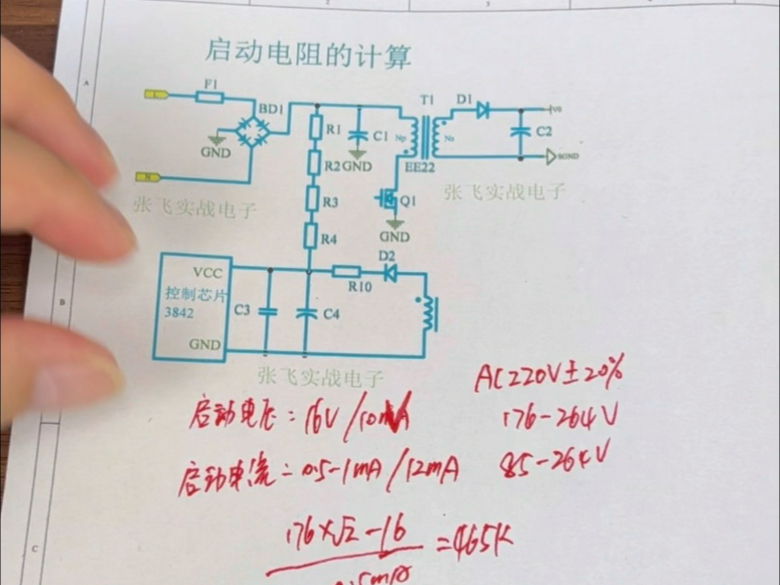 启动电阻的计算
F1
BD1
GND
R1
C1
GND
R2
R3
R4
T1
D1
Np
Ns
EE22
C2
SGND
Q1
GND
张飞实战电子
张飞实战电子
VCC
控制芯片
3842
GND
C3
C4
R10
D2
张飞实战电子
AC220V±20%
启动电压:16V/10V
176-264V
启动电流=0.5-1mA/12mA
85-264V
176×√2-16
=465K
0.5mA
A
B
C